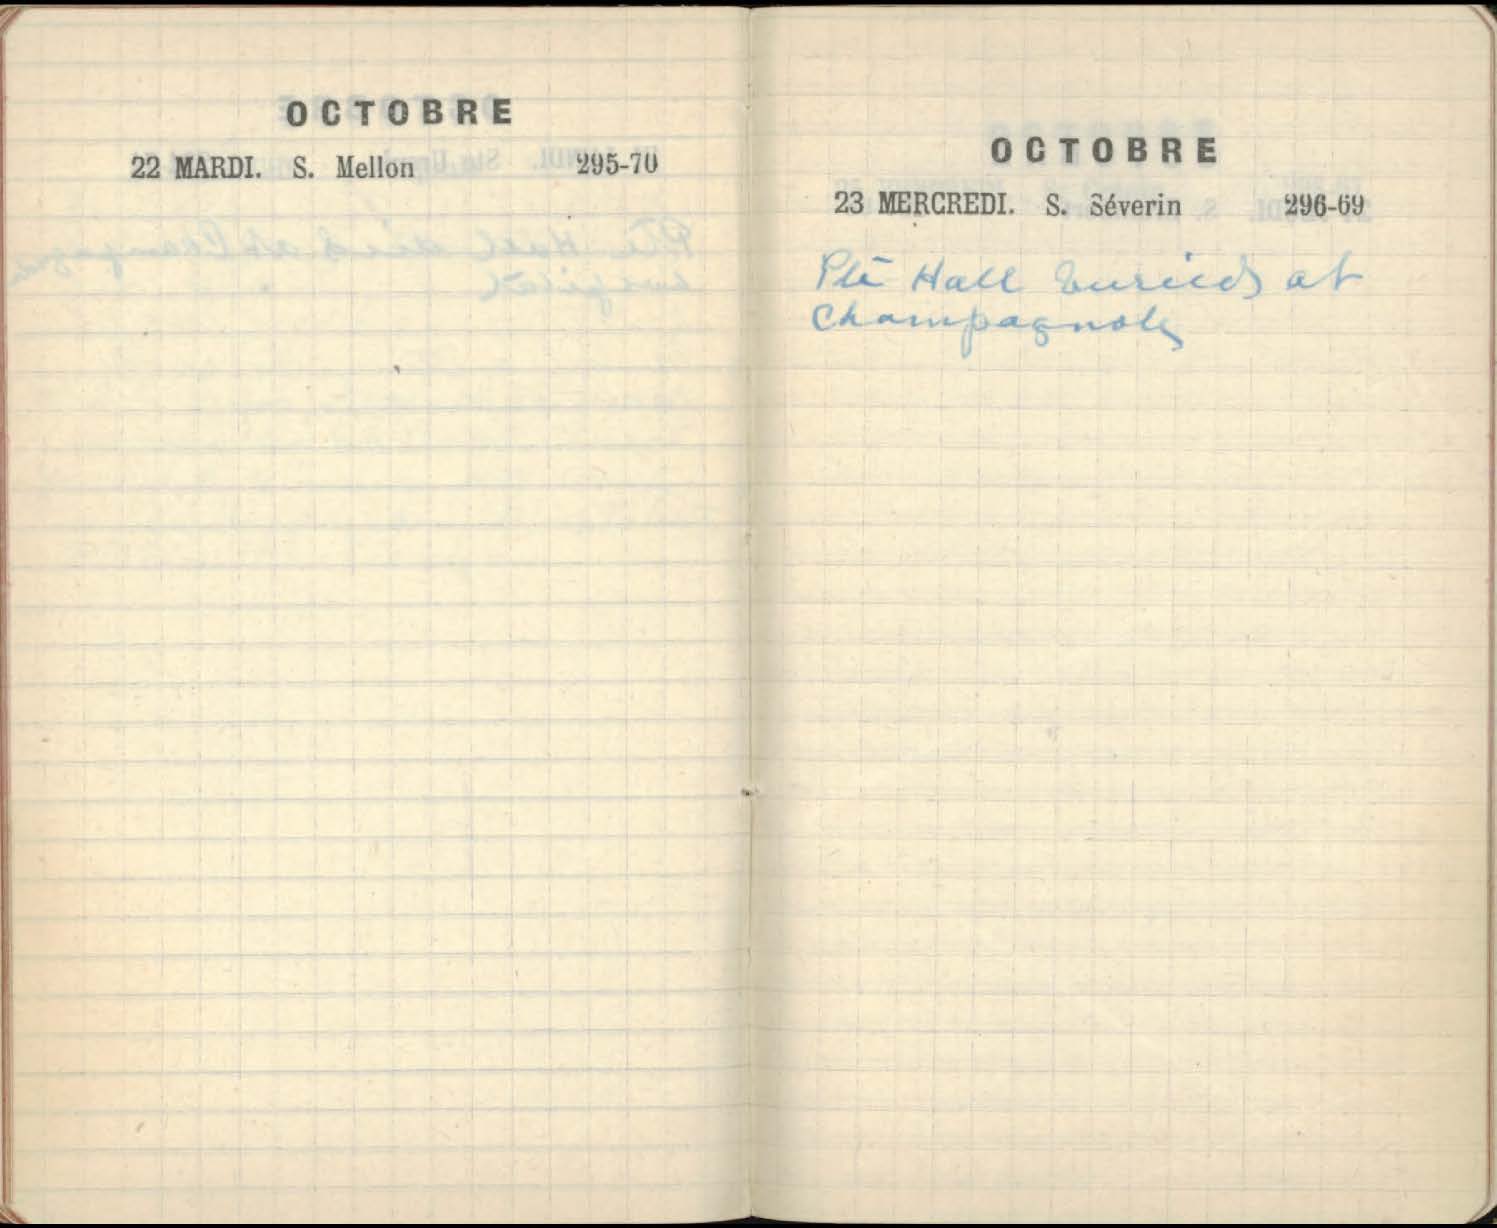 OCTOBRE
22 MARDI. S. Mellon 295-70
OCTOBRE
23 MERCREDI. S. Séverin 296-69
Pte Hall buried at
Champagnole